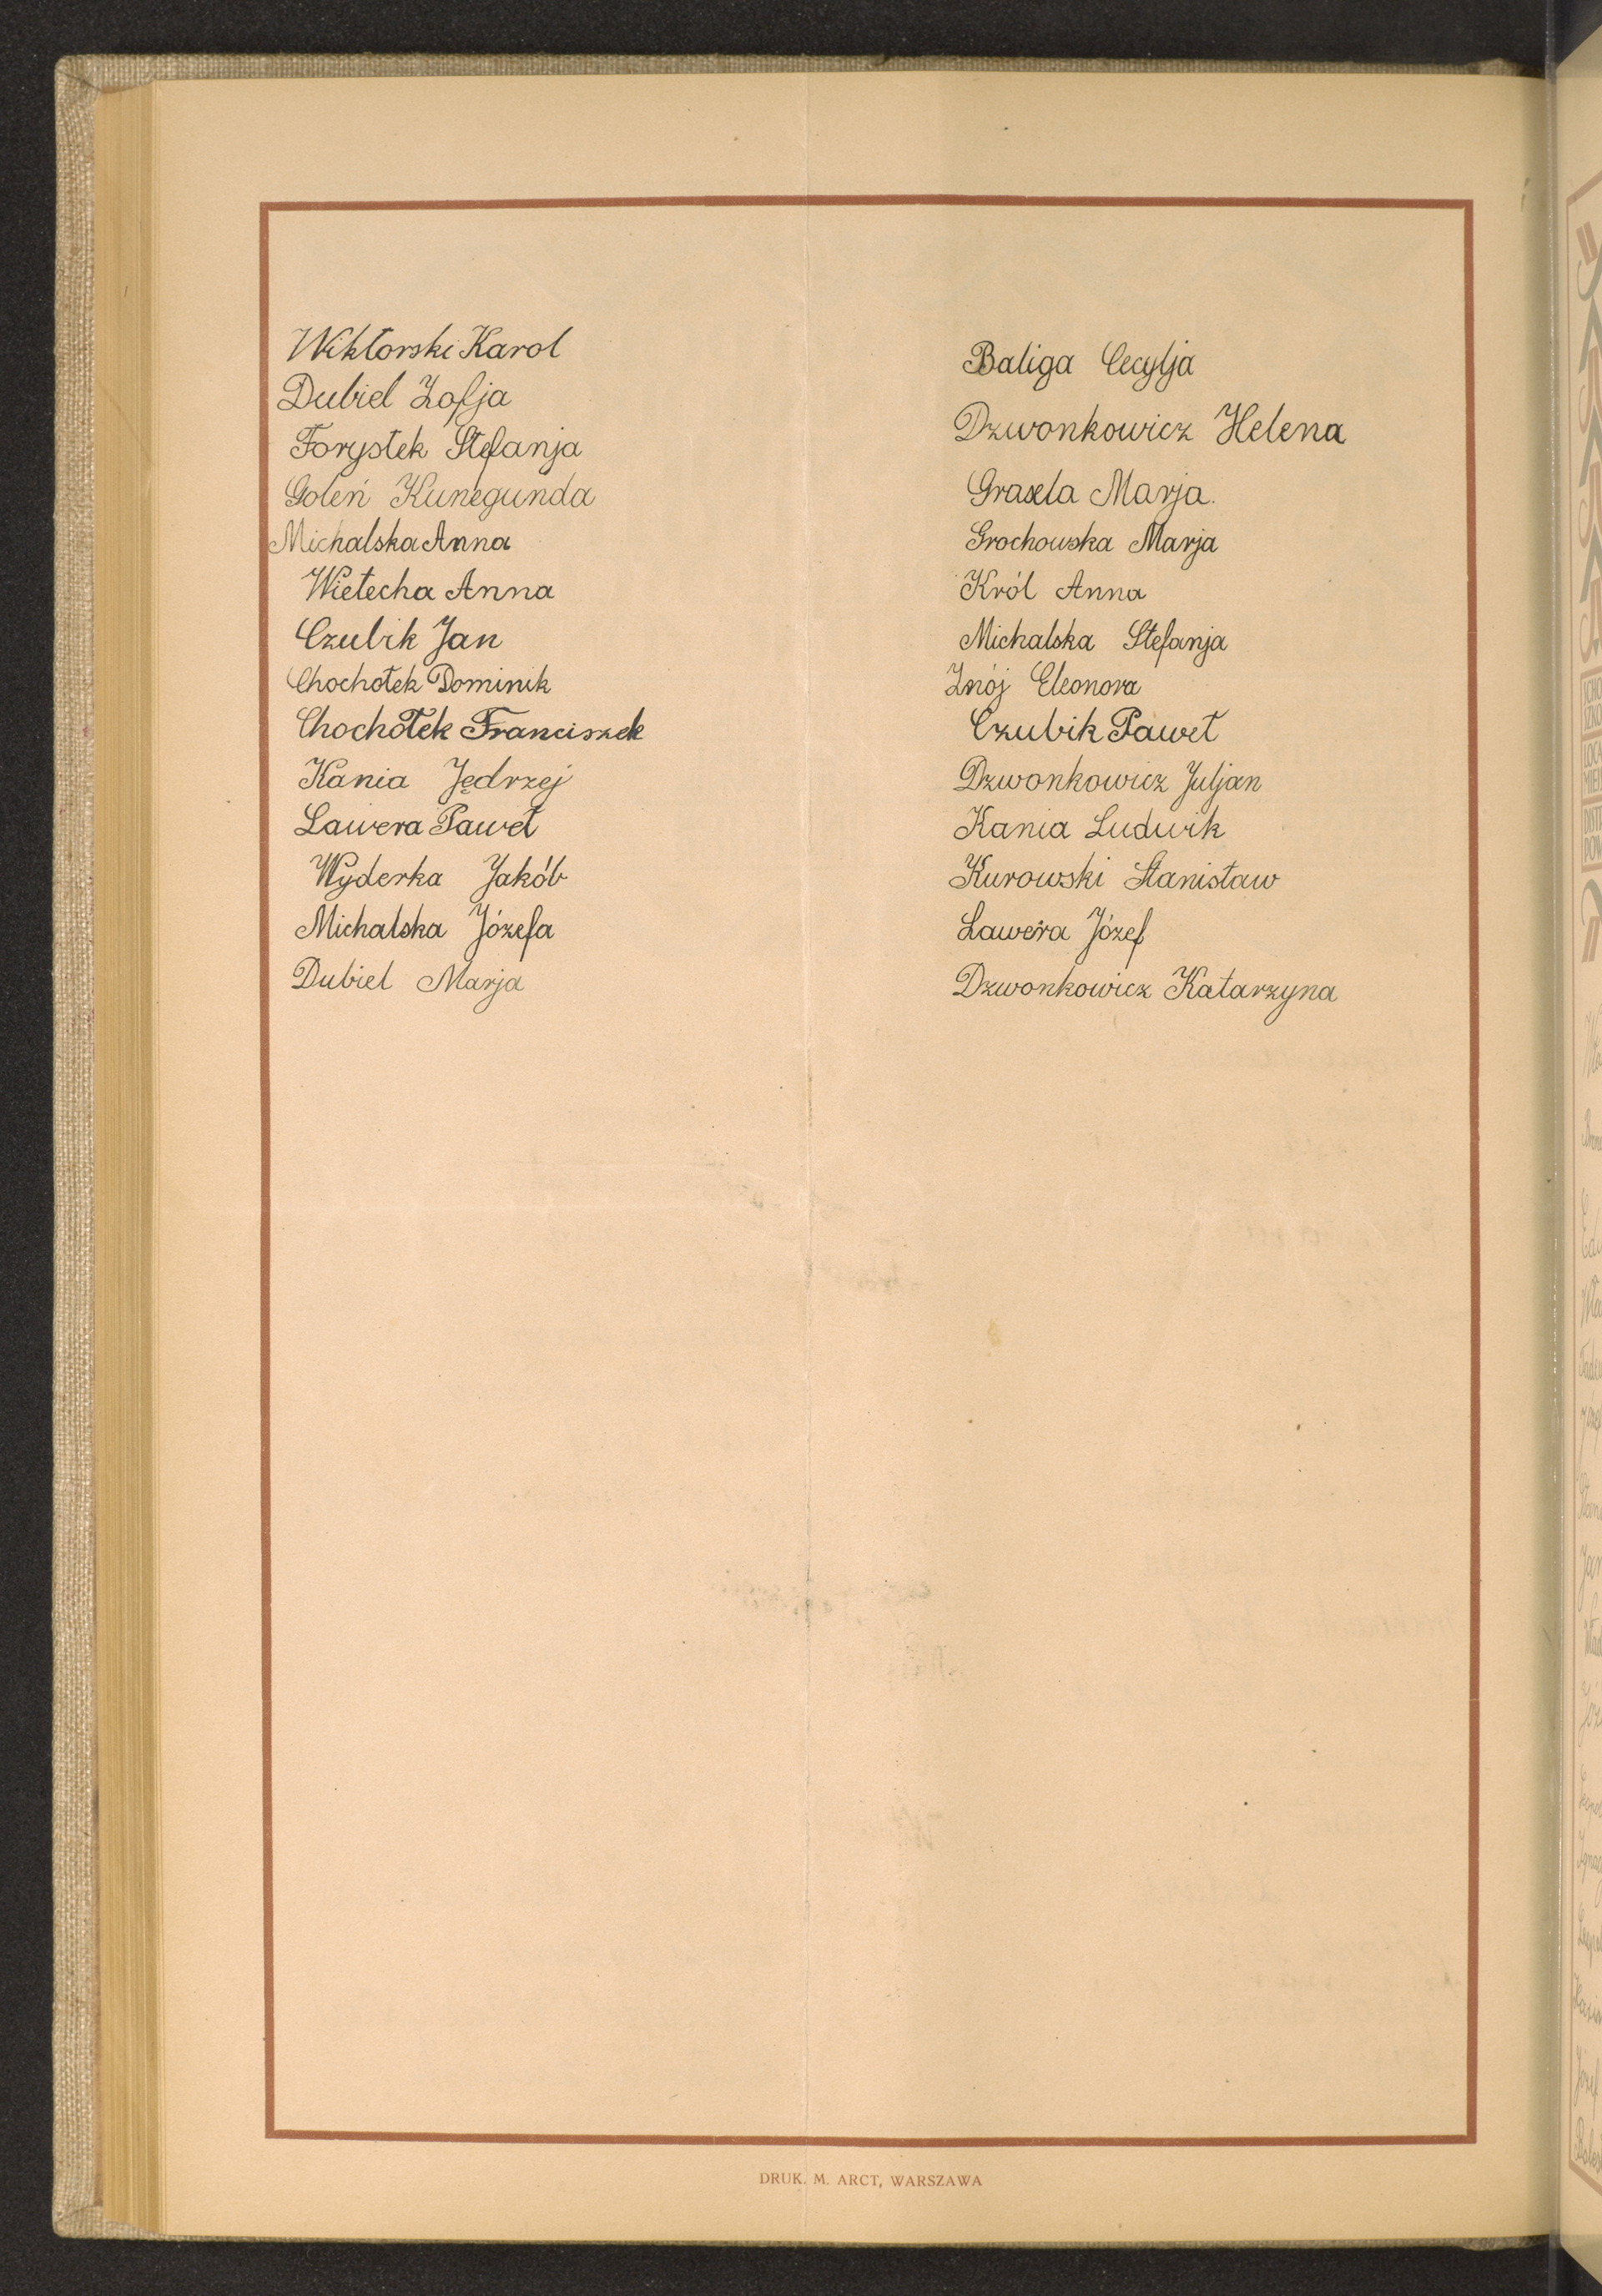 Wiktorski Karol
Dubiel Zofja
Forystek Stefanja
Goleń Kunegunda
Michalska Anna
Wietecha Anna
Czubik Jan
Chochołek Dominik
Chochołek Franciszek
Kania Jędrzej
Lawera Paweł
Wyderka Jakób
Michalska Józefa
Dubiel Marja
Baliga Cecylja
Dzwonkowicz Helena
Grasela Marja.
Grochowska Marja
Król Anna
Michalska Stefanja
Znój Eleonora
Czubik Paweł
Dzwonkowicz Juljan
Kania Ludwik
Kurowski Stanisław
Lawera Józef
Dzwonkowicz Katarzyna
DRUK. M. ARCT, WARSZAWA